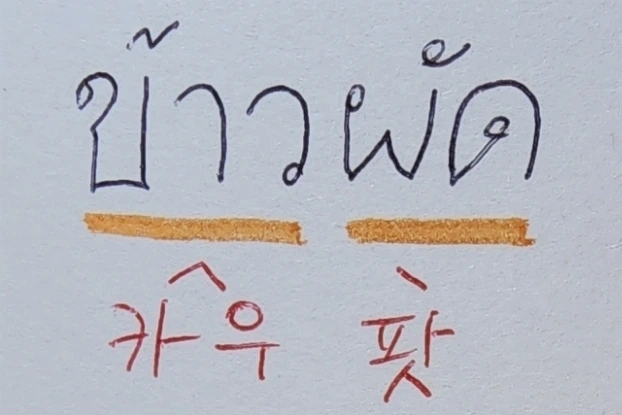 ข้าวผัด
카우 팟